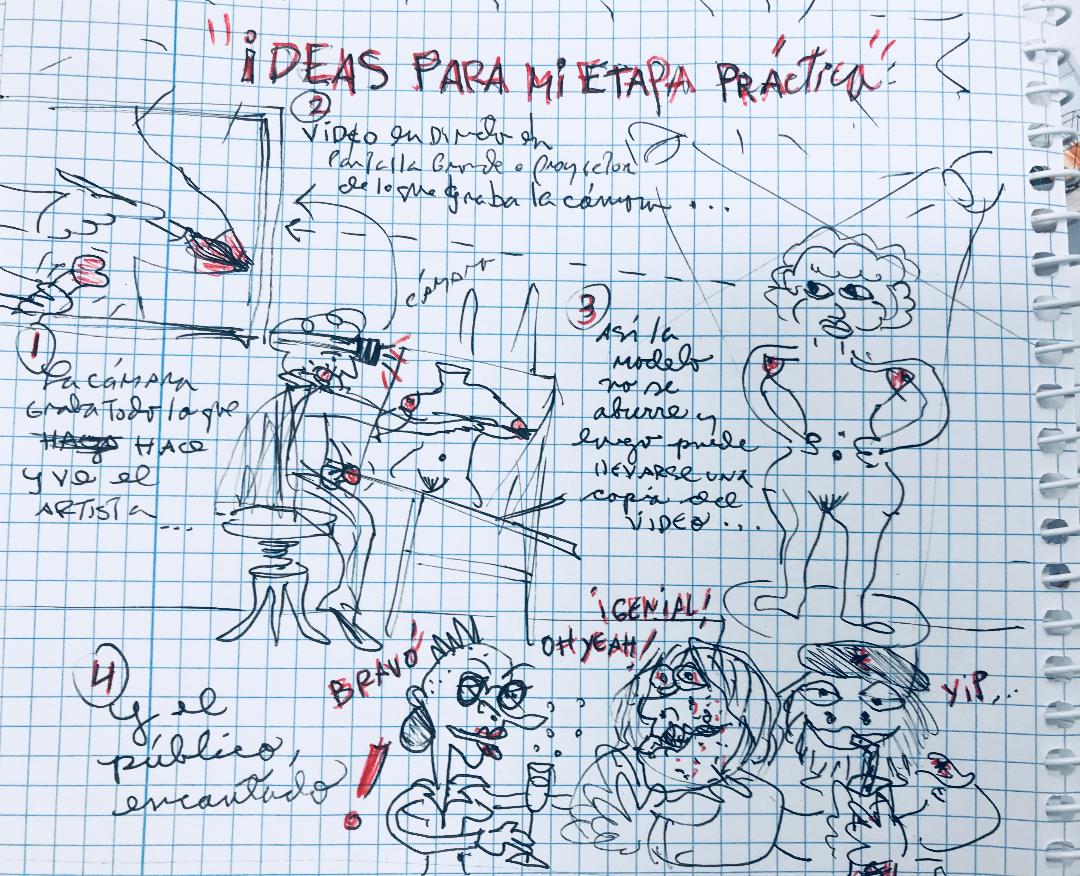 "¡IDEAS PARA MI ETAPA PRÁCTICA"
2
VIDEO en DIRECTO en
Pantalla Grande o proyector
de lo que graba la cámara ...
CÁMARA
1
La CÁMARA
Graba Todo lo que
HACE
y ve el
ARTISTA ...
3
Así la
modelo
no se
aburre y
luego puede
llevarse una
copia del
VIDEO ...
4
y el
público,
encantado
!
BRAVO!
¡GENIAL!
OH YEAH!
YiP...